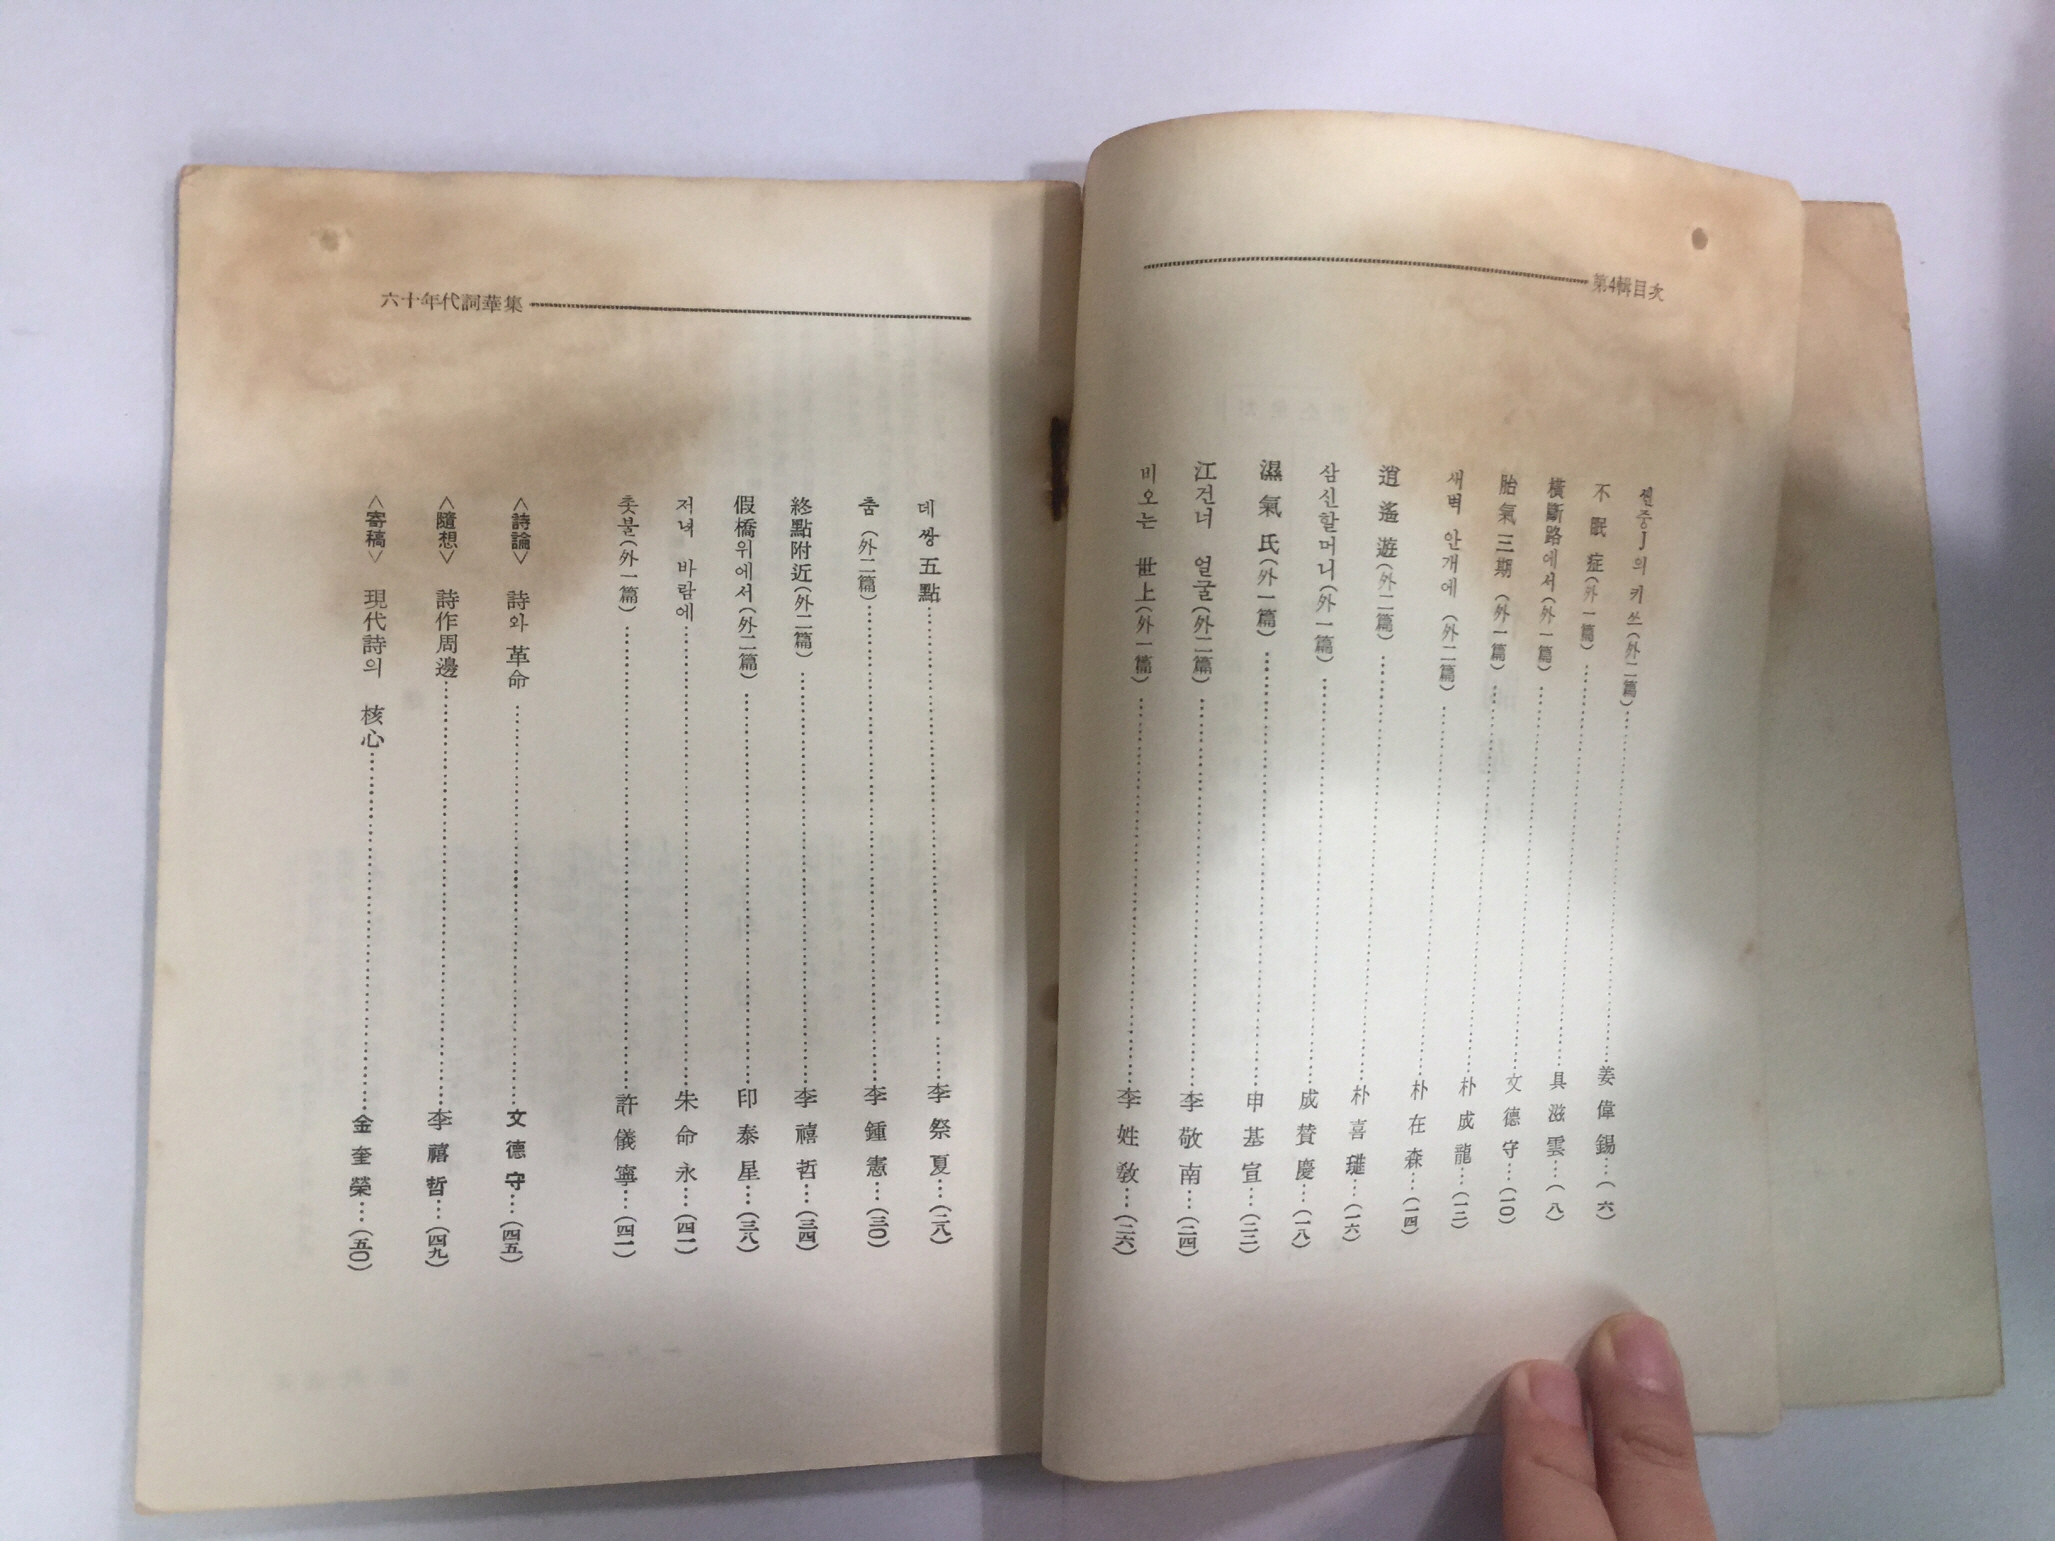 第4輯目次
센중J의 키쓰(外二篇)……姜偉錫…(六)
不眠症(外一篇)……具滋雲…(八)
橫斷路에서(外一篇)……文德守…(一〇)
胎氣三期(外一篇)……朴成龍…(一二)
새벽 안개에(外二篇)……朴在森…(一四)
逍遙遊(外二篇)……朴喜璡…(一六)
삼신할머니(外一篇)……成賛慶…(一八)
濕氣氏(外一篇)……申基宣…(二二)
江건너 얼굴(外二篇)……李敬南…(二四)
비오는 世上(外一篇)……李姓教…(二六)
六十年代詞華集
데쌍五點……李祭夏…(二八)
춤(外二篇)……李鍾憲…(三〇)
終點附近(外二篇)……李禧哲…(三四)
假橋위에서(外二篇)……印泰星…(三八)
저녁 바람에……朱命永…(四一)
촛불(外一篇)……許儀寧…(四二)
<詩論> 詩와 革命……文德守…(四五)
<隨想> 詩作周邊……李禧哲…(四九)
<寄稿> 現代詩의 核心……金奎榮…(五〇)